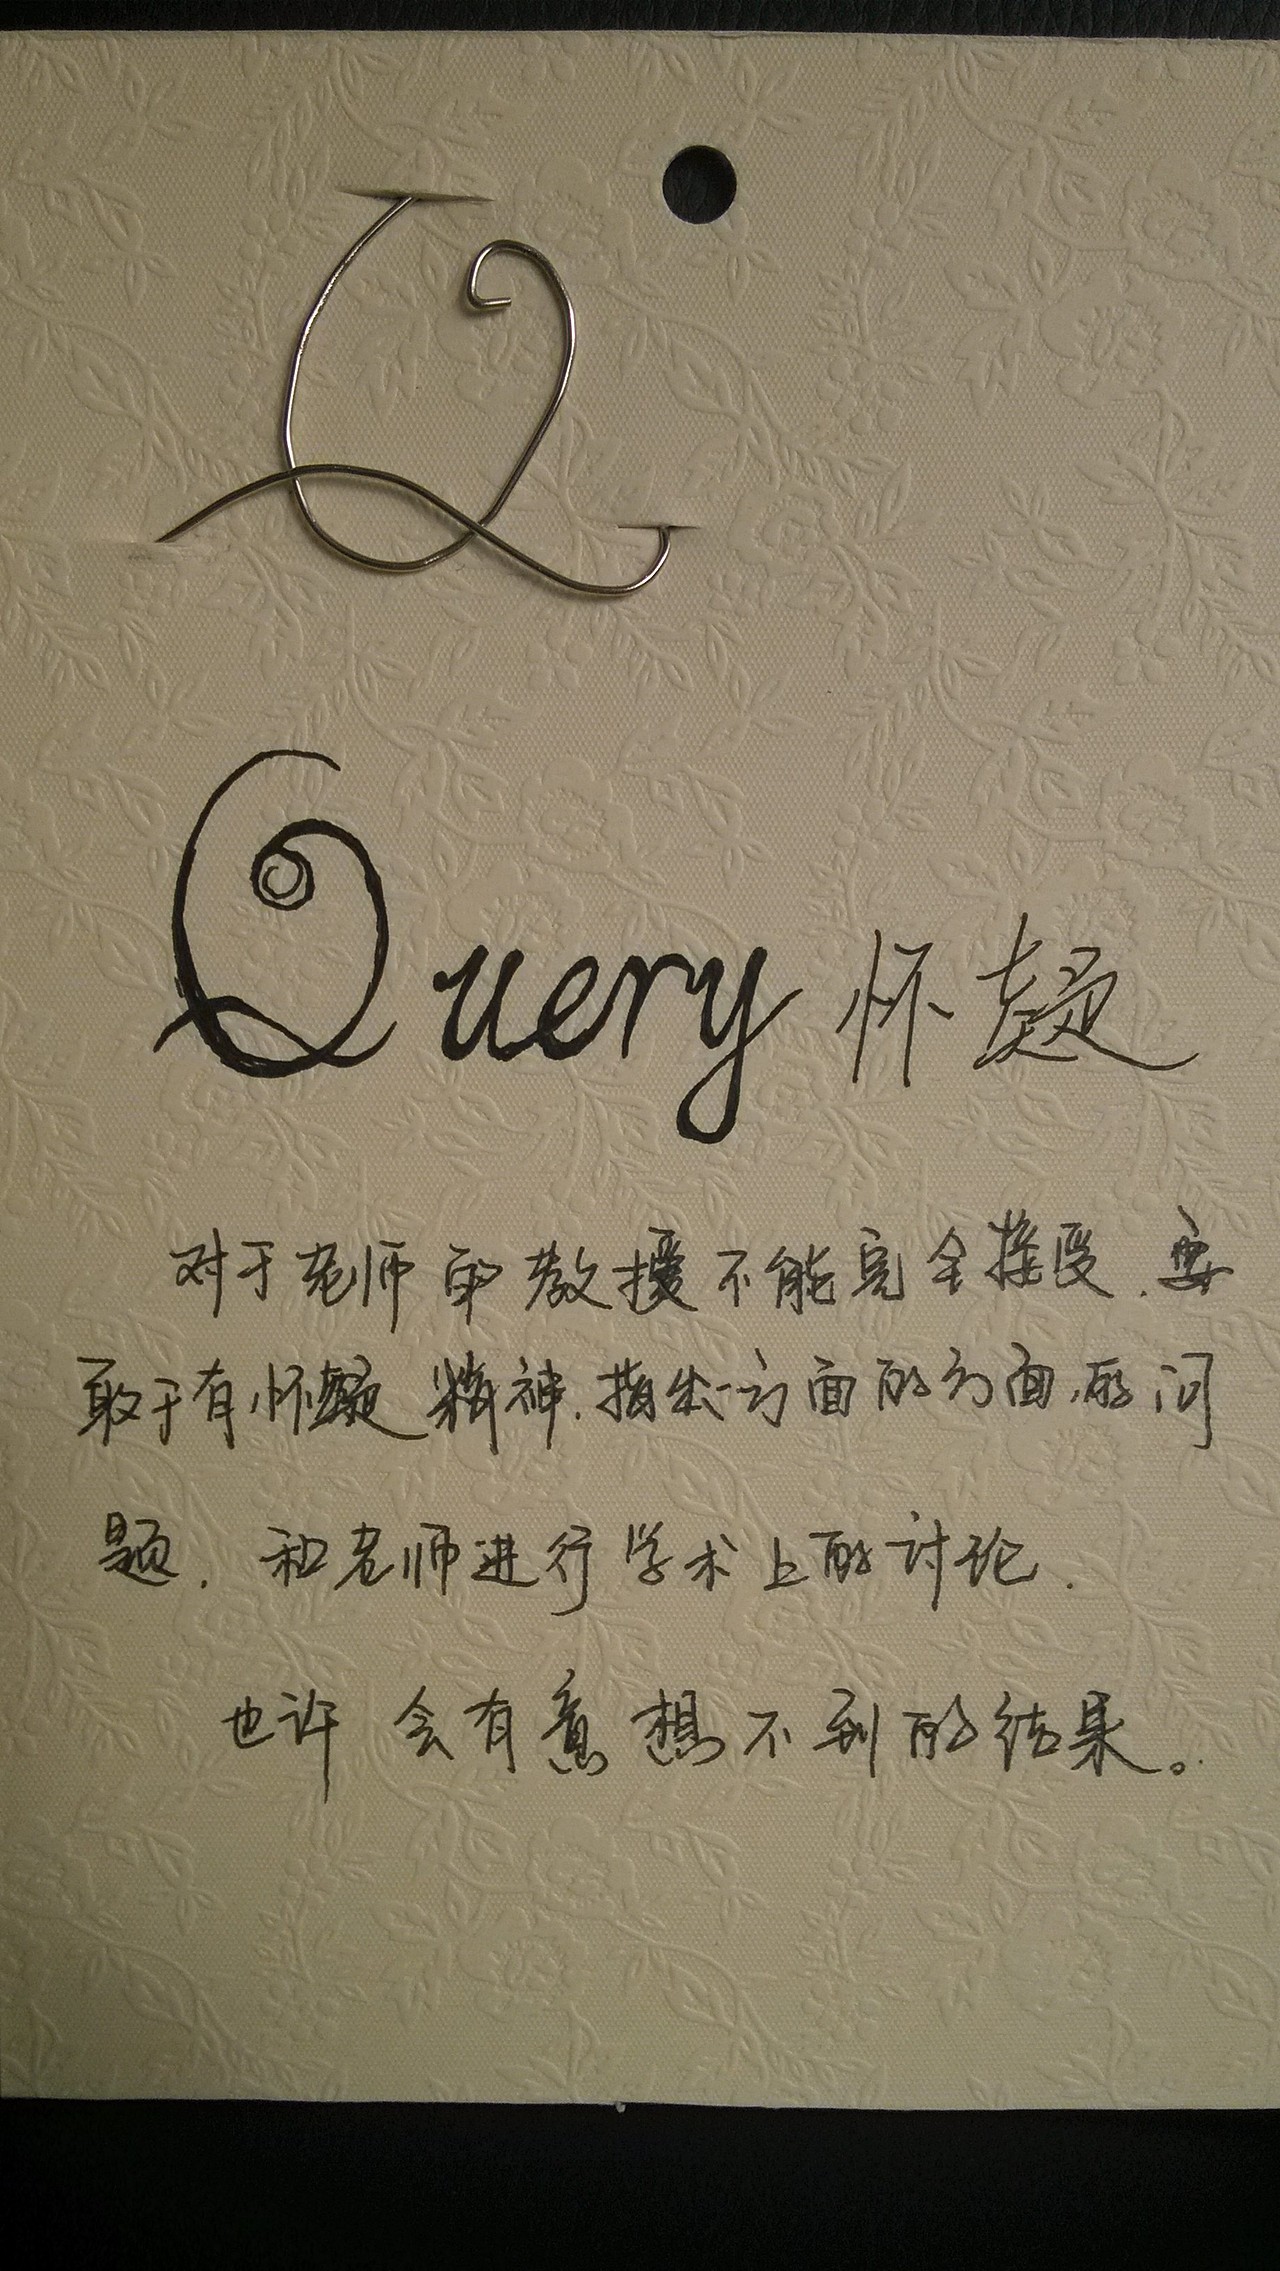 Q
Query 怀疑
对于老师的教授不能完全接受.要
敢于有怀疑精神.指出方面的方面的问
题.和老师进行学术上的讨论.
也许会有意想不到的结果。